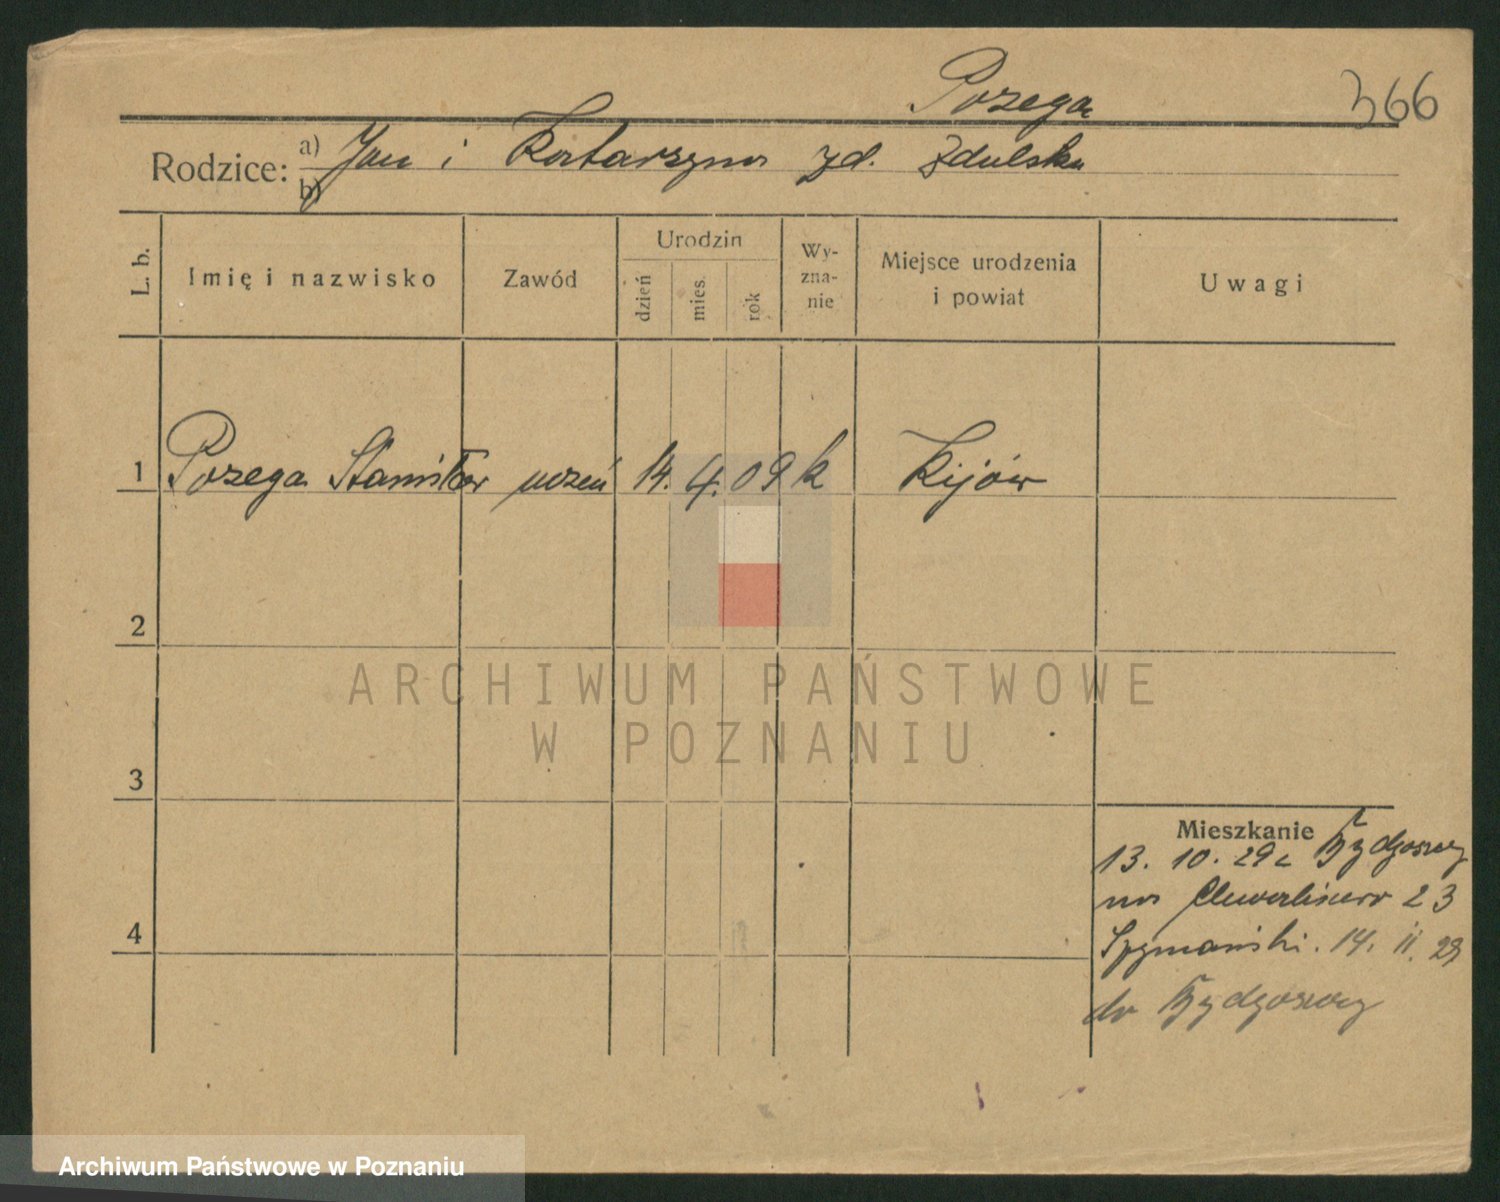 Pozega
366
Rodzice: a) Jan i Katarzyna zd. Zdulska
b)
L. b.
Imię i nazwisko
Zawód
Urodzin
dzień
mies.
rok
Wy-
zna-
nie
Miejsce urodzenia
i powiat
Uwagi
1 Pozega Stanisław uczeń 14. 4. 09 k Kijów
2
3
4
Mieszkanie
13. 10. 29 z Bydgoszczy
na 23
14. 11. 29
do Bydgoszczy
ARCHIWUM PAŃSTWOWE
W POZNANIU
Archiwum Państwowe w Poznaniu